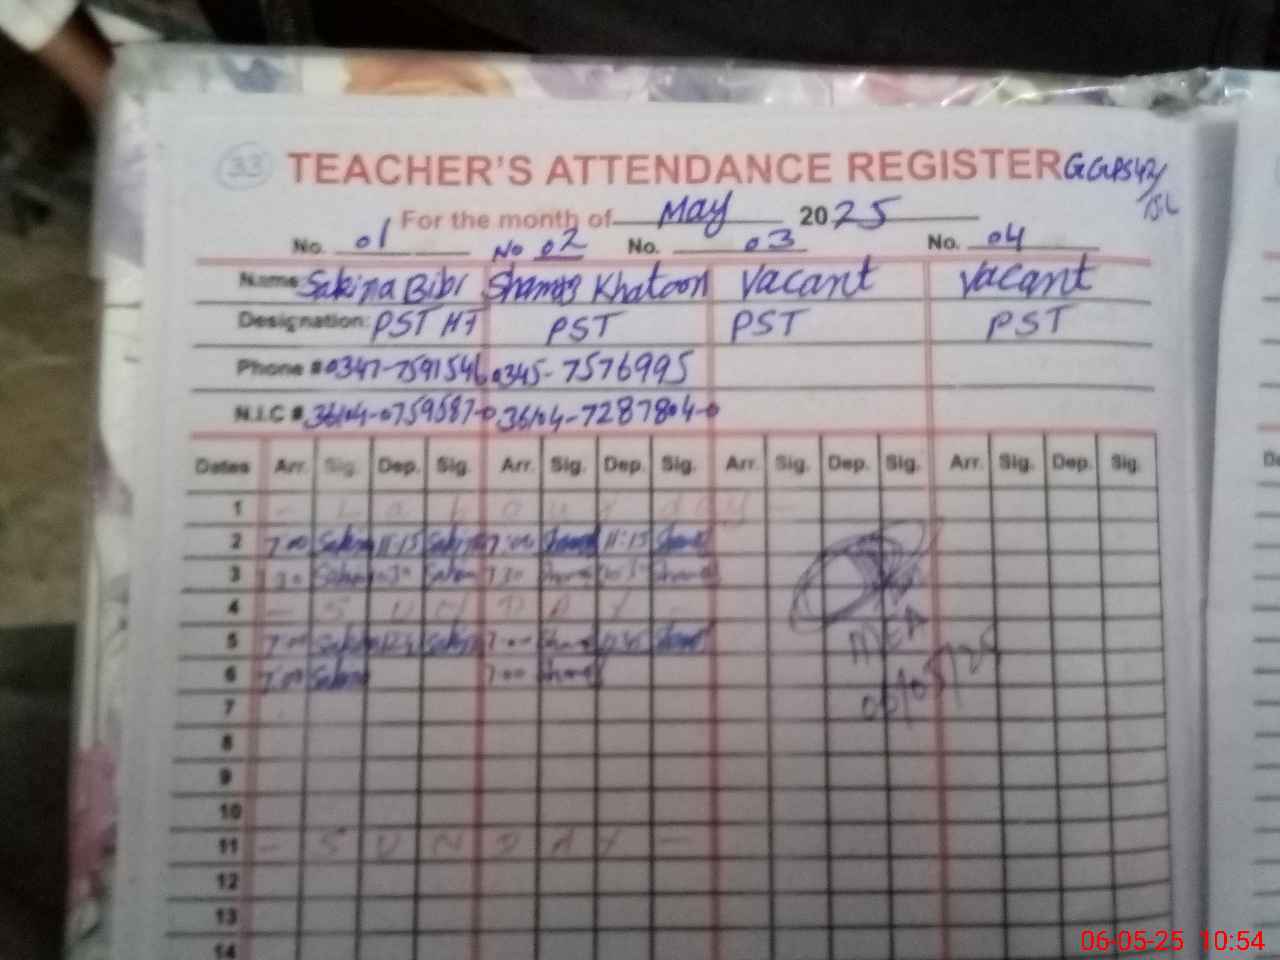 33 TEACHER'S ATTENDANCE REGISTER GGPS 42/
15L
For the month of May 2025
No. 01 No 02 No. 03 No. 04
Name: Sakina Bibi Shamas Khatoon Vacant Vacant
Designation: PST HT PST PST PST
Phone # 0347-7591546 0345-7576995
N.I.C #. 36104-0759587-0 36104-7287804-0
Dates Arr. Sig. Dep. Sig. Arr. Sig. Dep. Sig. Arr. Sig. Dep. Sig. Arr. Sig. Dep. Sig.
1 - L a b o u r day -
2 7:00 Sakina 11:15 Sakina 7:00 11:15
3 Sakina Sakina 7:30
4 - S U N D A Y -
5 7:00 Sakina Sakina 7:00
6 7:00 Sakina 7:00
MEA
06/05/25
7
8
9
10
11 - S U N D A Y -
12
13
14
06-05-25 10:54